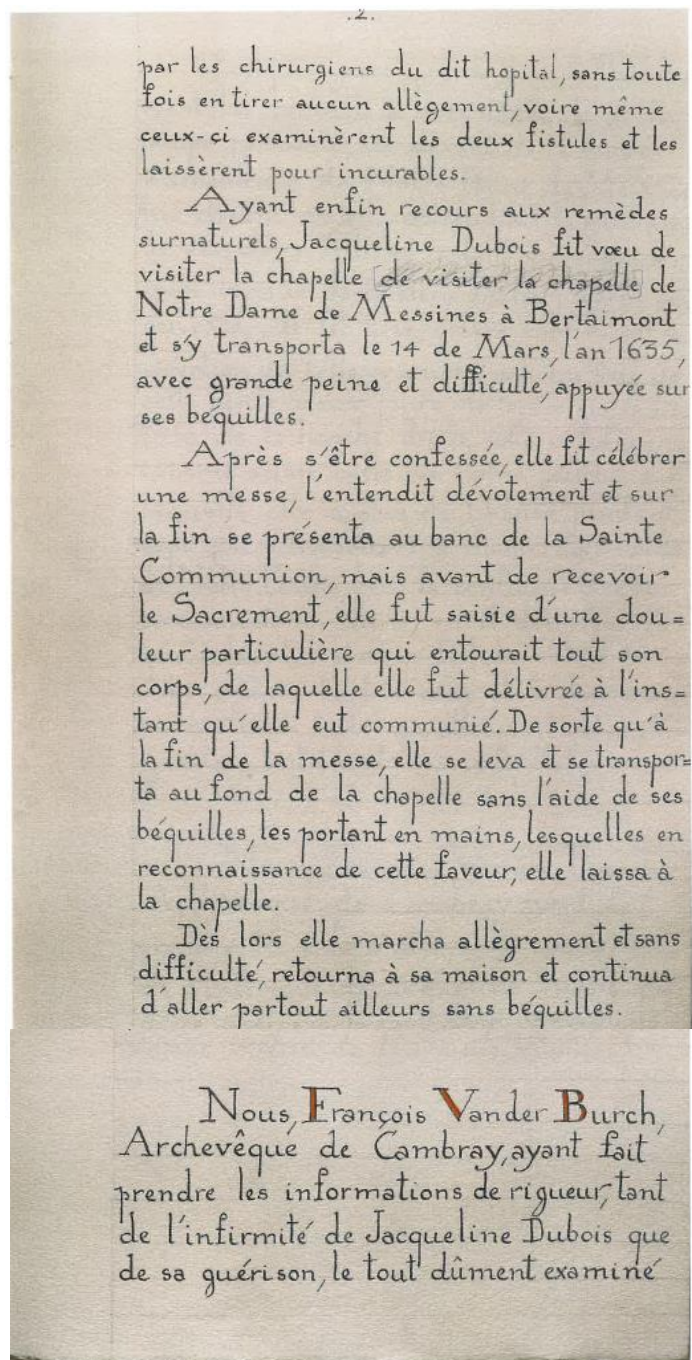 .2.
par les chirurgiens du dit hopital, sans toute
fois en tirer aucun allègement, voire même
ceux-çi examinèrent les deux fistules et les
laissèrent pour incurables.
Ayant enfin recours aux remèdes
surnaturels, Jacqueline Dubois fit vœu de
visiter la chapelle de visiter la chapelle de
Notre Dame de Messines à Bertaimont
et s'y transporta le 14 de Mars, l'an 1635,
avec grande peine et difficulté, appuyée sur
ses béquilles.
Après s'être confessée, elle fit célébrer
une messe, l'entendit dévotement et sur
la fin se présenta au banc de la Sainte
Communion, mais avant de recevoir
le Sacrement, elle fut saisie d'une dou=
leur particulière qui entourait tout son
corps, de laquelle elle fut délivrée à l'ins=
tant qu'elle eut communié. De sorte qu'à
la fin de la messe, elle se leva et se transpor=
ta au fond de la chapelle sans l'aide de ses
béquilles, les portant en mains, lesquelles en
reconnaissance de cette faveur, elle laissa à
la chapelle.
Dès lors elle marcha allègrement et sans
difficulté, retourna à sa maison et continua
d'aller partout ailleurs sans béquilles.
Nous, François Vander Burch,
Archevêque de Cambray, ayant fait
prendre les informations de rigueur, tant
de l'infirmité de Jacqueline Dubois que
de sa guérison, le tout dûment examiné